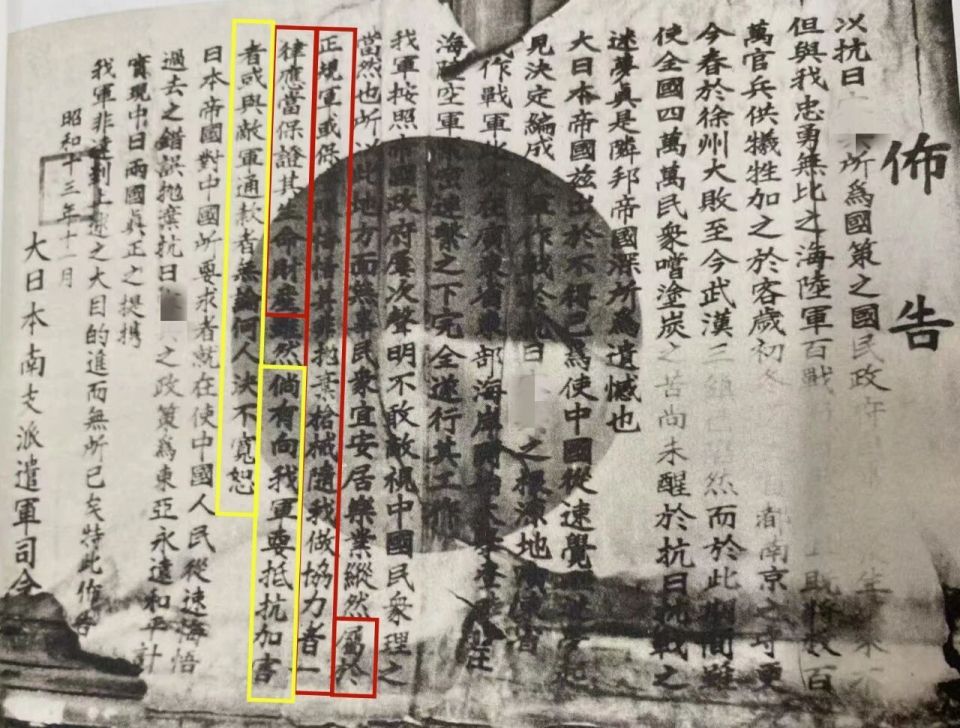 佈告
以抗日所爲國策之國民政府
但與我忠勇無比之海陸軍百戰既將校百
萬官兵供犧牲加之於客歲初冬都南京之守更
今春於徐州大敗至今武漢三鎮然而於此期間雖
使全國四萬萬民衆嚐塗炭之苦尚未醒於抗日抗戰之
迷夢眞是隣邦帝國深所爲遺憾也
大日本帝國兹出於不得已爲使中國從速覺
見決定編成軍作戰於抗日之根源地廣東省
作戰軍在廣東省東部海岸
海陸空軍密連繫之下完全遂行其工作
我軍按照帝國政府屢次聲明不敢敵視中國民衆理之
當然也所以此地方面無辜民衆宜安居樂業縱然屬於
正規軍或保悔悟其非抛棄槍械隨我做協力者一
律應當保證其生命財產雖然倘有向我軍要抵抗加害
者或與敵軍通款者無論何人決不寬恕
日本帝國對中國所要求者就在使中國人民從速悔悟
過去之錯誤抛棄抗日之政策爲東亞永遠和平計
實現中日兩國眞正之提携
我軍非達到上述之大目的進而無所已矣特此佈告
昭和十三年十一月
大日本南支派遣軍司令